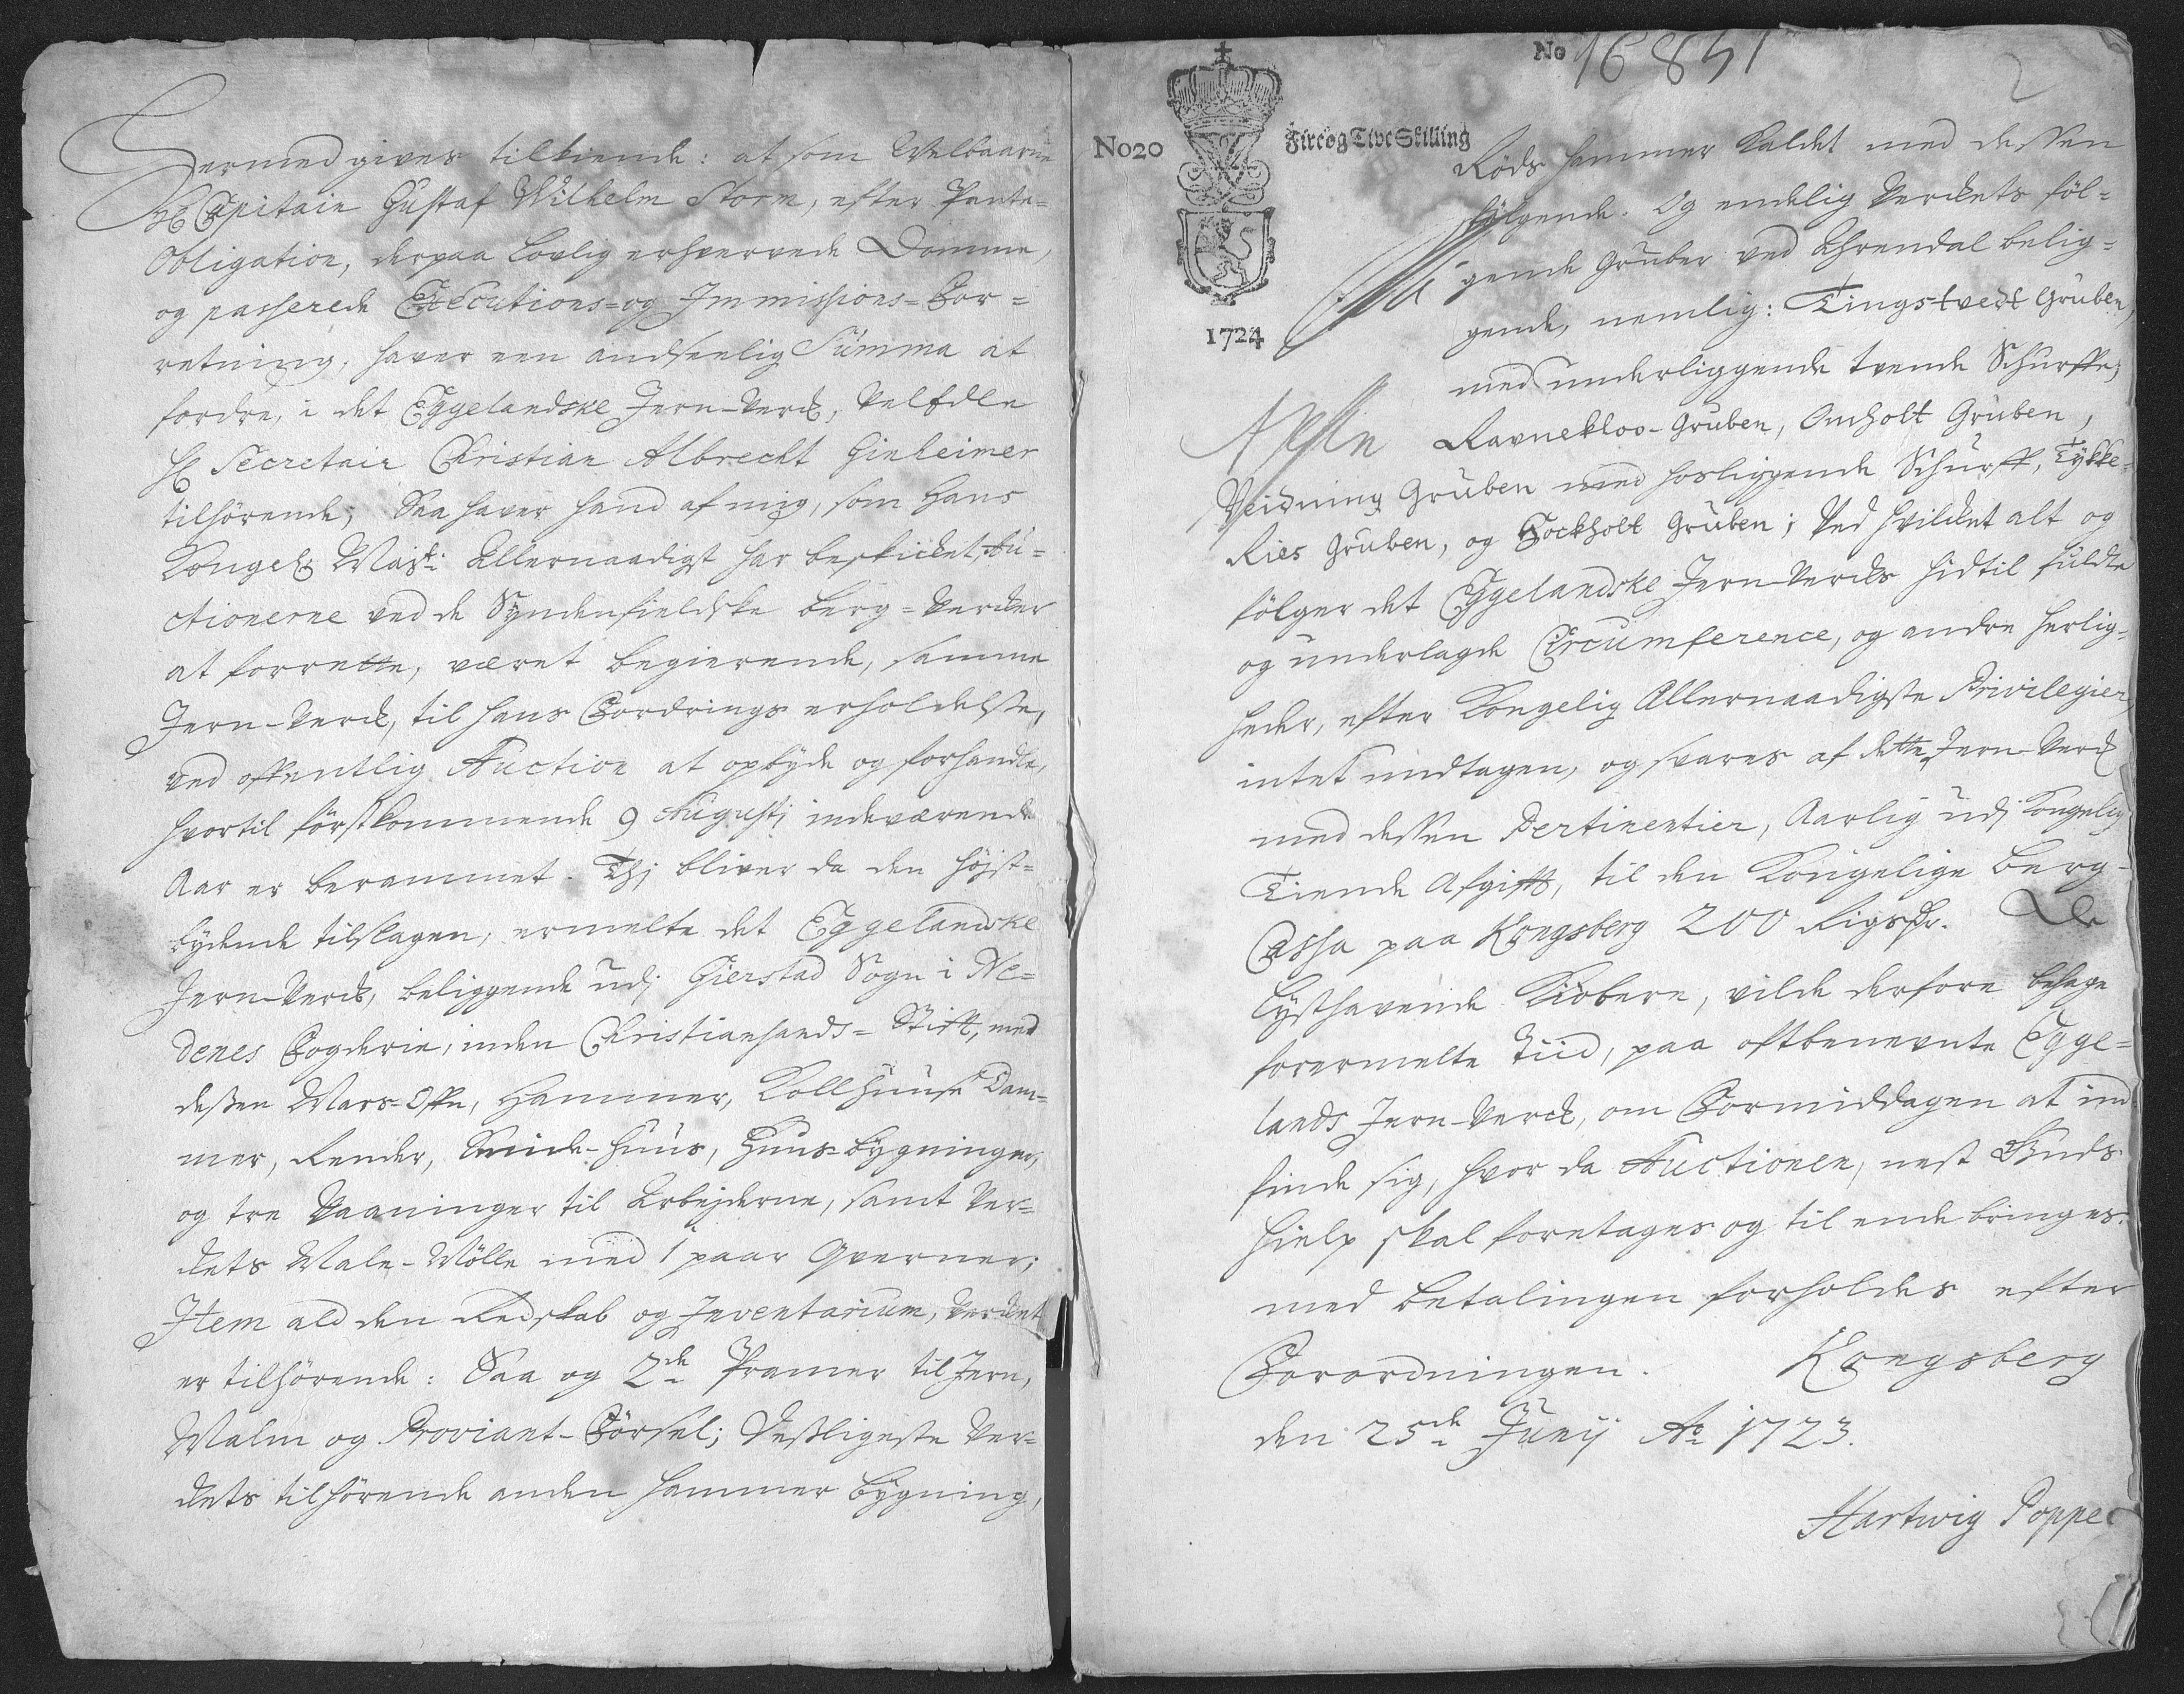 Hermed gives tilkiende: at som Welbaarne
Hr Capitain Gustaf Wilhelm Storm, efter Pante-
Obligation, derpaa lovlig erhvervede Domme,
og passerede Executions- og Immissions-For-
retning, haver een andseelig Summa at
fordre, i det Eggelandske Jern-Verck, Velædle
Hr Secretair Christian Albrecht Ginheimer
tilhørende, Saa haver hand af mig, som Hans
Kongel. Mayt: Allernaadigst har beskicket, Au-
ctionerne ved de Syndenfieldske berg-Vercker
at forrette, været begierende, samme
Jern-Verck, til hans Fordrings erholdelse,
ved offentlig Auction at opbyde og forhandle,
hvortil førstkommende 9 Augusti indeværende
Aar er berammet. Thj bliver da den højst-
bydende tilslagen, ermelte det Eggelandske
Jern-Verck, beliggende udj Gierstad Sogn i Ne-
denes Fogderie, inden Christiansands-Stift, med
dessen Mars-Ofn, Hammer, Kollhuuse Dam-
mer, Render, Smide-huus, Huus-bygninger,
og tre Vaaninger til Arbejderne, samt Ver-
ckets Male-Mølle med 1 paar Qverner;
Item ald den Redskab og Inventarium, Vercket
er tilhørende: Saa og 2de Pramer til Jern,
Malm og Proviant-Førsel; Desligeste Ver-
ckets tilhørende anden hammer bygning,
No 16851
2
No20
Fire og Tive Skilling
1724
Røds hammer kaldet med dessen
følgende. Og endelig Verckets føl-
gende Gruber ved Ahrendal belig-
gende, nemlig: Tingstvedt Gruben,
med underliggende tvende Schurffe;
Ravnekloo-Gruben, Omholt Gruben,
Weidning Gruben med hosliggende Schurff, Tykke-
Ries Gruben, og Fockholt Gruben; Ved hvilcket alt og
følger det Eggelandske Jern-Vercks hidtil fuldte
og underlagde Circumference, og andre herlig-
heder, efter Kongelig Allernaadigste Privilegier,
intet undtagen, og svares af dette Jern-Verck
med dessen Pertinentier, Aarlig udj Kongelig
Tiende Afgift, til den Kongelige Berg-
Cassa paa Kongsberg 200 Rigsdr. De
lysthavende Kiøbere, vilde derfore behage
forermelte Tiid, paa oftbenevnte Egge-
lands Jern-Verck, om Formiddagen at ind-
finde sig, hvor da Auctionen, nest Guds
hielp skal foretages og til ende bringes.
med betalingen forholdes efter
Forordningen. Kongsberg
den 25de Junij Ao 1723.
Hartwig Poppe